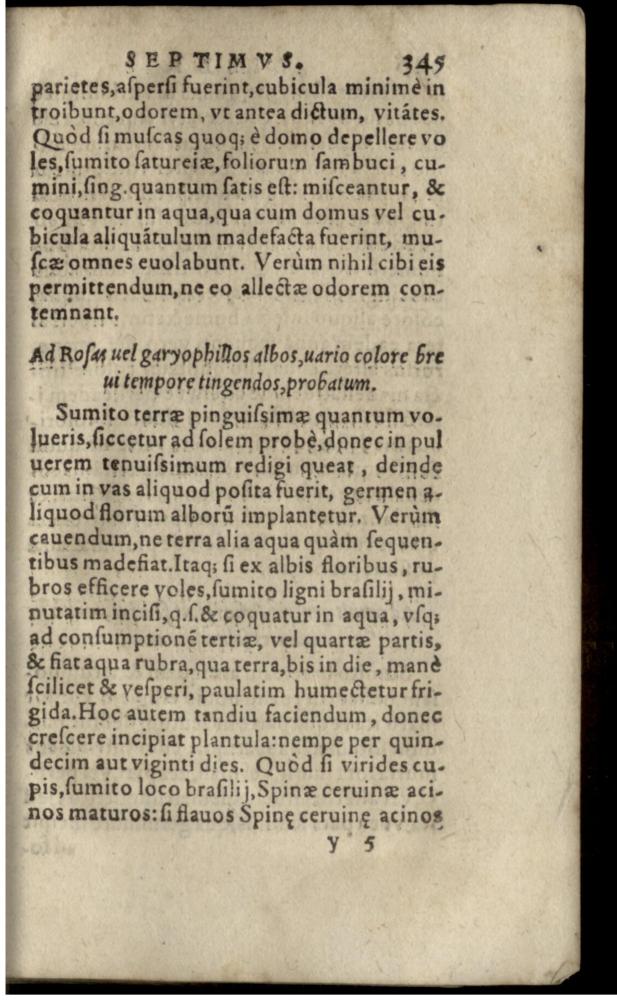 SEPTIMVS. 345
parietes,aſperſi fuerint,cubicula minimè in
troibunt,odorem, vt antea dictum, vitátes.
Quòd ſi muſcas quoq; è domo depellere vo
les,ſumito ſatureiæ,foliorum ſambuci, cu-
mini,ſing.quantum ſatis eſt: miſceantur, &
coquantur in aqua,qua cum domus vel cu-
bicula aliquãtulum madefacta fuerint, mu-
ſcæ omnes euolabunt. Verùm nihil cibi eis
permittendum,ne eo allectæ odorem con-
temnant.
Ad Roſas uel garyophillos albos,uario colore bre
ui tempore tingendos,probatum.
Sumito terræ pinguiſsimæ quantum vo-
lueris,ſiccetur ad ſolem probè,donec in pul
uerem tenuiſsimum redigi queat, deinde
cum in vas aliquod poſita fuerit, germen a-
liquod florum alborũ implantetur. Verùm
cauendum,ne terra alia aqua quàm ſequen-
tibus madefiat.Itaq; ſi ex albis floribus, ru-
bros efficere voles,ſumito ligni braſilij, mi-
nutatim inciſi,q.ſ.& coquatur in aqua, vſq;
ad conſumptionẽ tertiæ, vel quartæ partis,
& fiat aqua rubra,qua terra,bis in die, manè
ſcilicet & veſperi, paulatim humectetur fri-
gida.Hoc autem tandiu faciendum, donec
creſcere incipiat plantula:nempe per quin-
decim aut viginti dies. Quòd ſi virides cu-
pis,ſumito loco braſilij,Spinæ ceruinæ aci-
nos maturos:ſi flauos Spinę ceruinę acinos
y 5